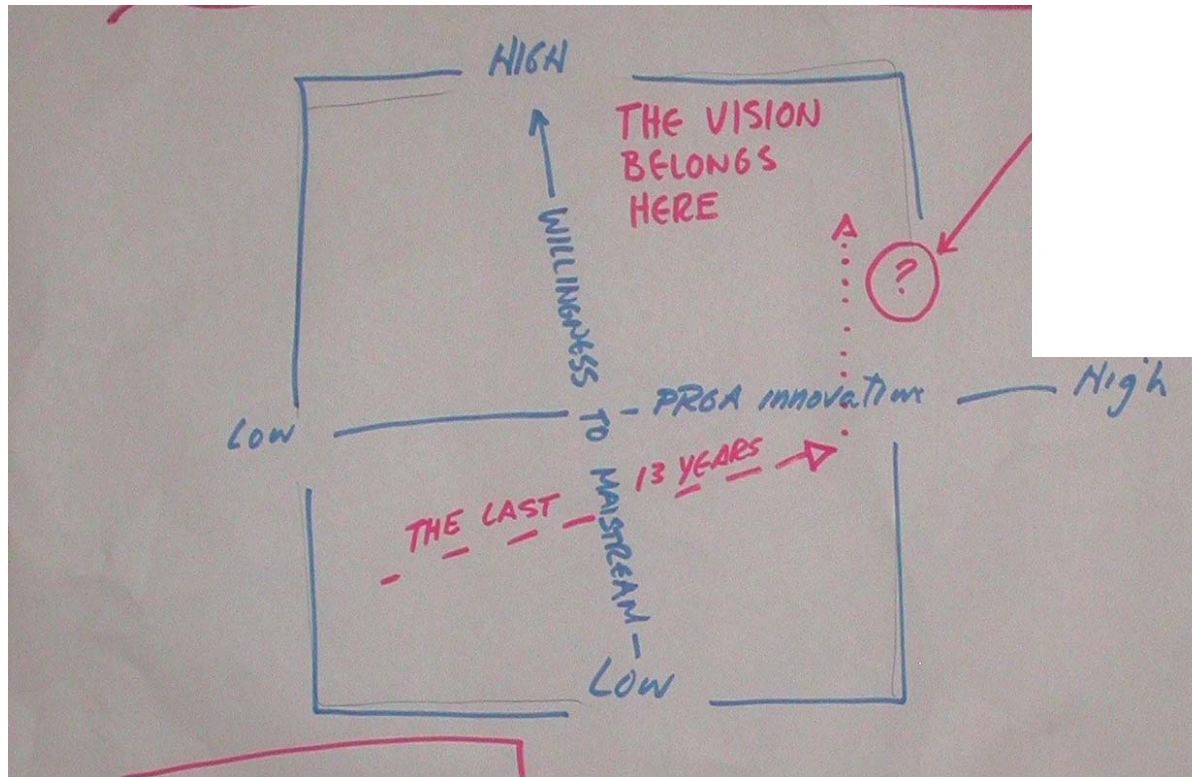 HIGH
THE VISION
BELONGS
HERE
WILLINGNESS TO MAISTREAM
?
Low
PRGA innovations
High
THE LAST 13 YEARS
LOW